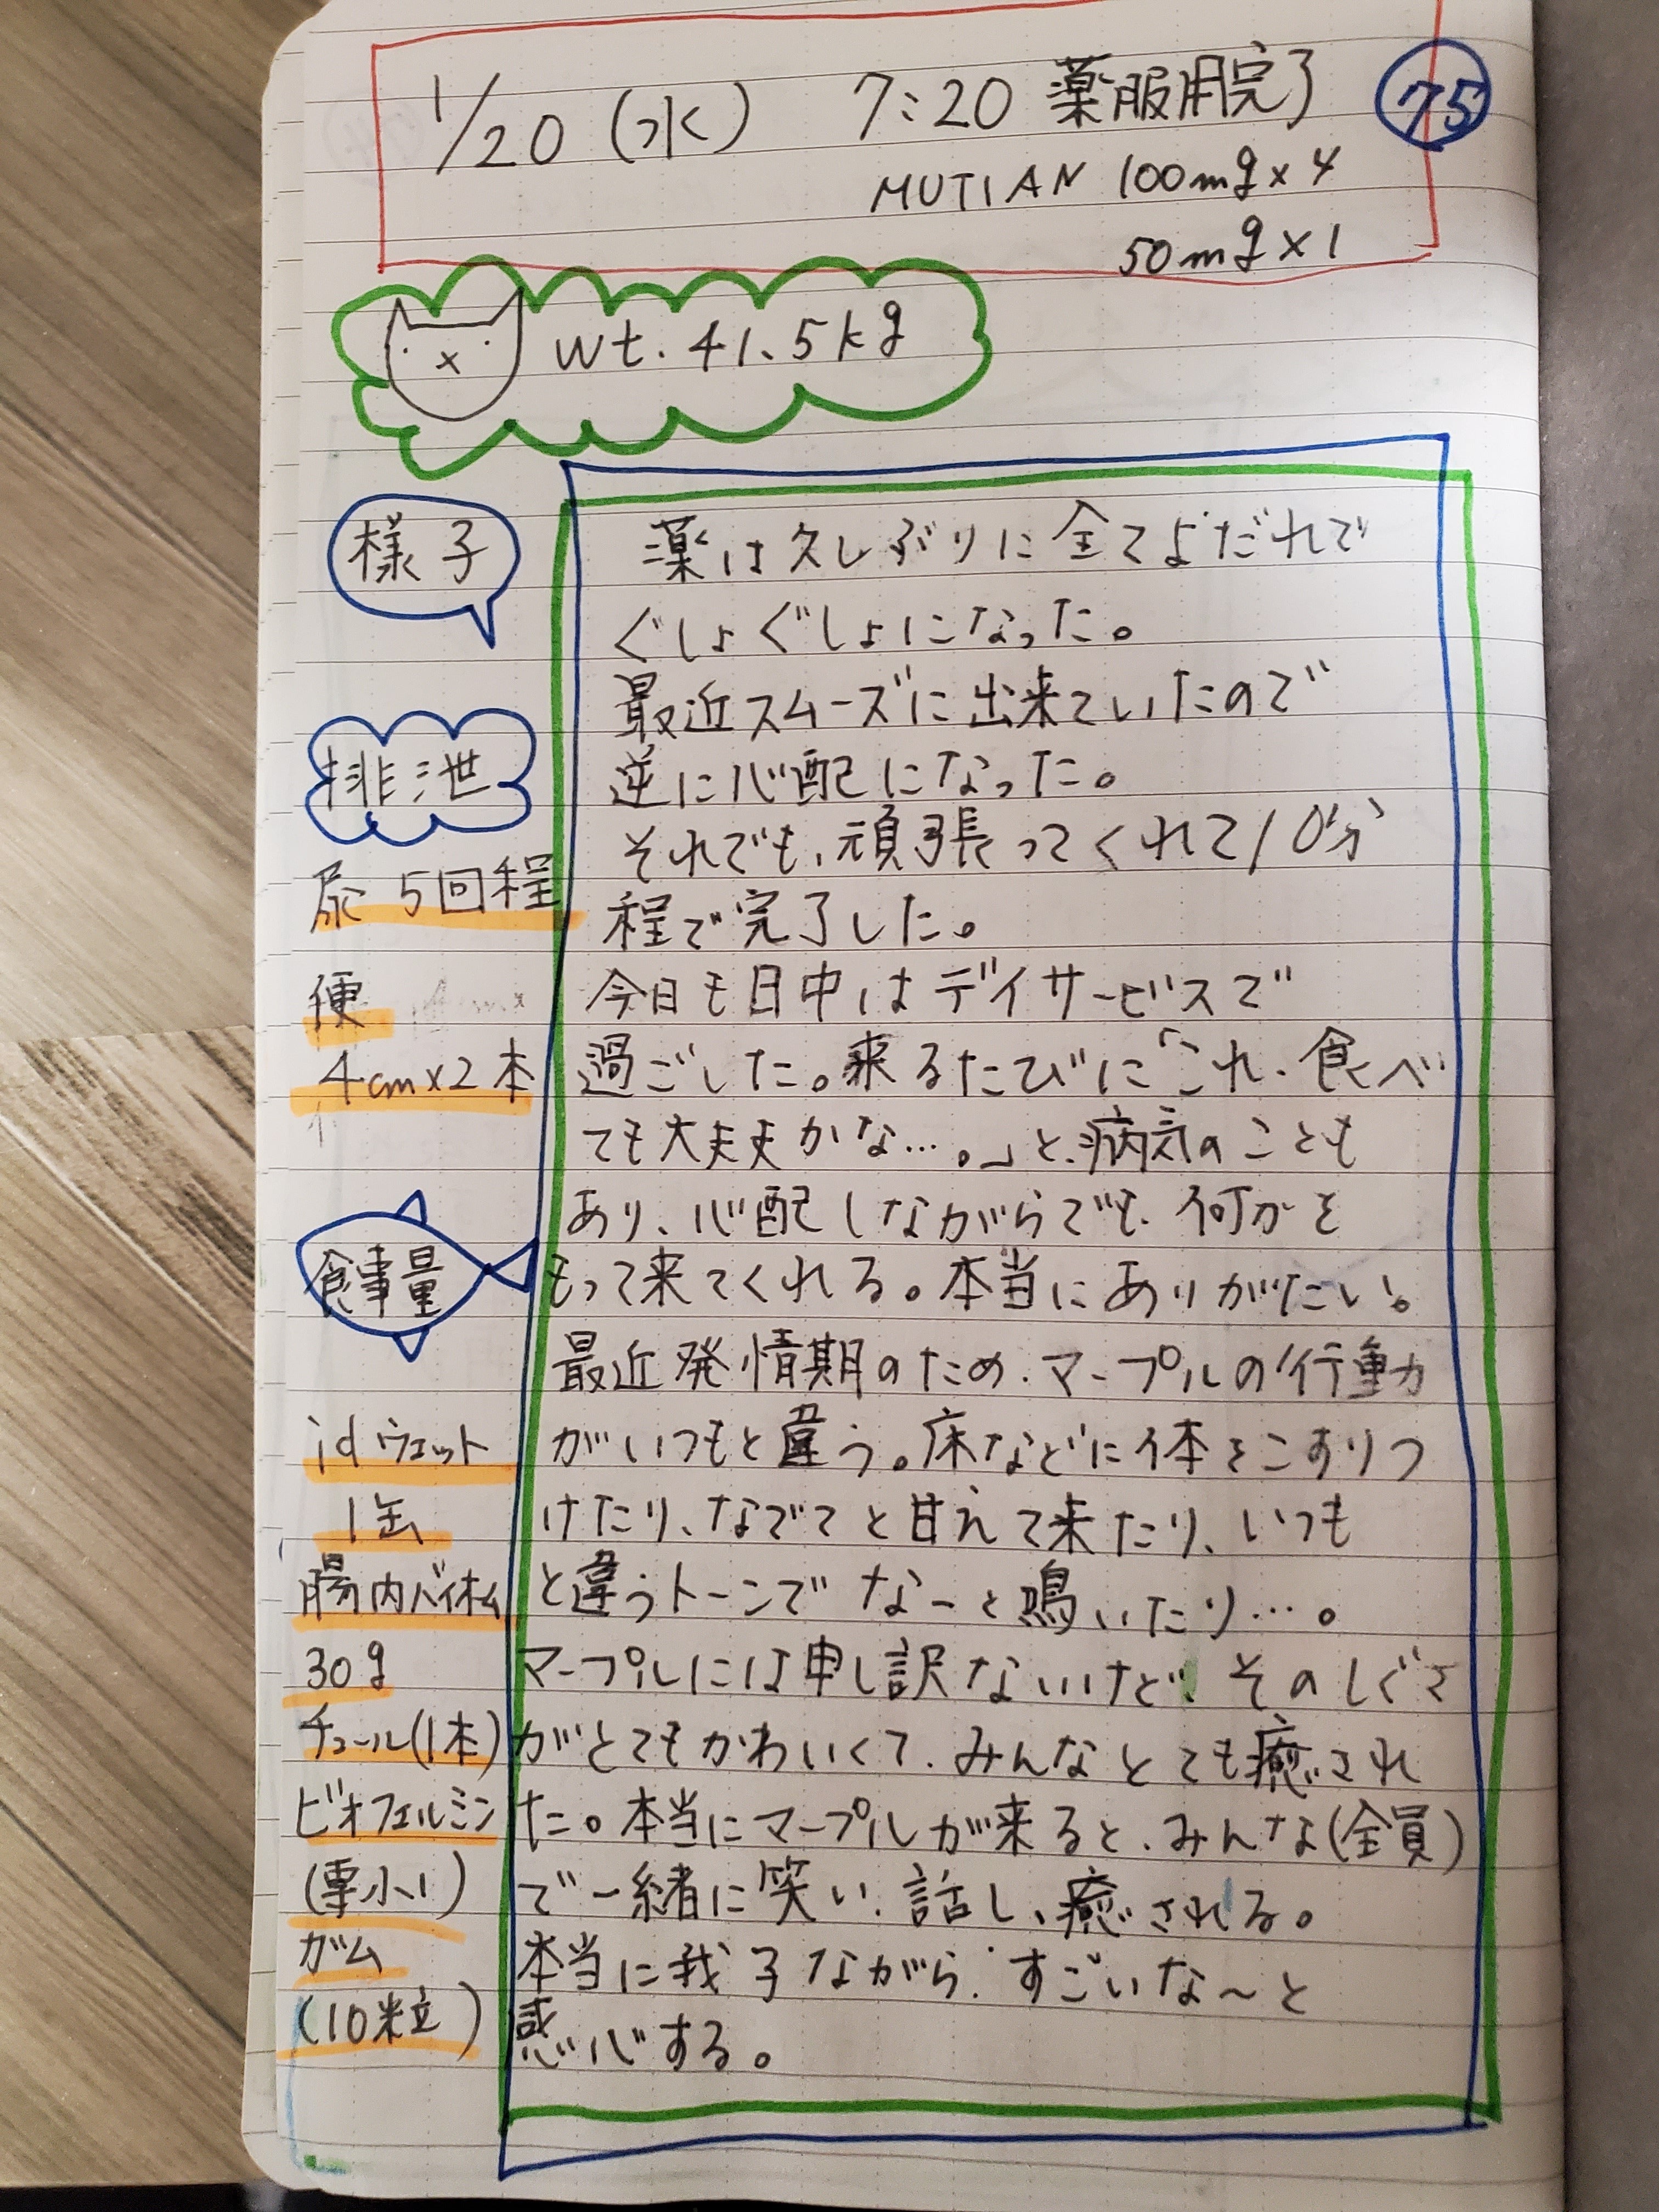 1/20（水） 7:20 薬服用完了
75
MUTIAN 100mg×4
50mg×1
wt. 41.5kg
様子
排泄
尿 5回程
便
4cm×2本
食事量
idウェット
1缶
腸内バイオム
30g
チュール(1本)
ビオフェルミン
(専小1)
ガム
(10粒)
薬は久しぶりに全てよだれで
ぐしょぐしょになった。
最近スムーズに出来ていたので
逆に心配になった。
それでも、頑張ってくれて10分
程で完了した。
今日も日中はデイサービスで
過ごした。来るたびに「これ、食べ
ても大丈夫かな…。」と、病気のことも
あり、心配しながらでも、何かを
もって来てくれる。本当にありがたい。
最近発情期のため、マープルの行動
がいつもと違う。床などに体をこすりつ
けたり、なでてと甘えて来たり、いつも
と違うトーンでなーと鳴いたり…。
マープルには申し訳ないけど、そのしぐさ
がとてもかわいくて、みんなとても癒され
た。本当にマープルが来ると、みんな(全員)
で一緒に笑い、話し、癒される。
本当に我子ながら、すごいな～と
感心する。